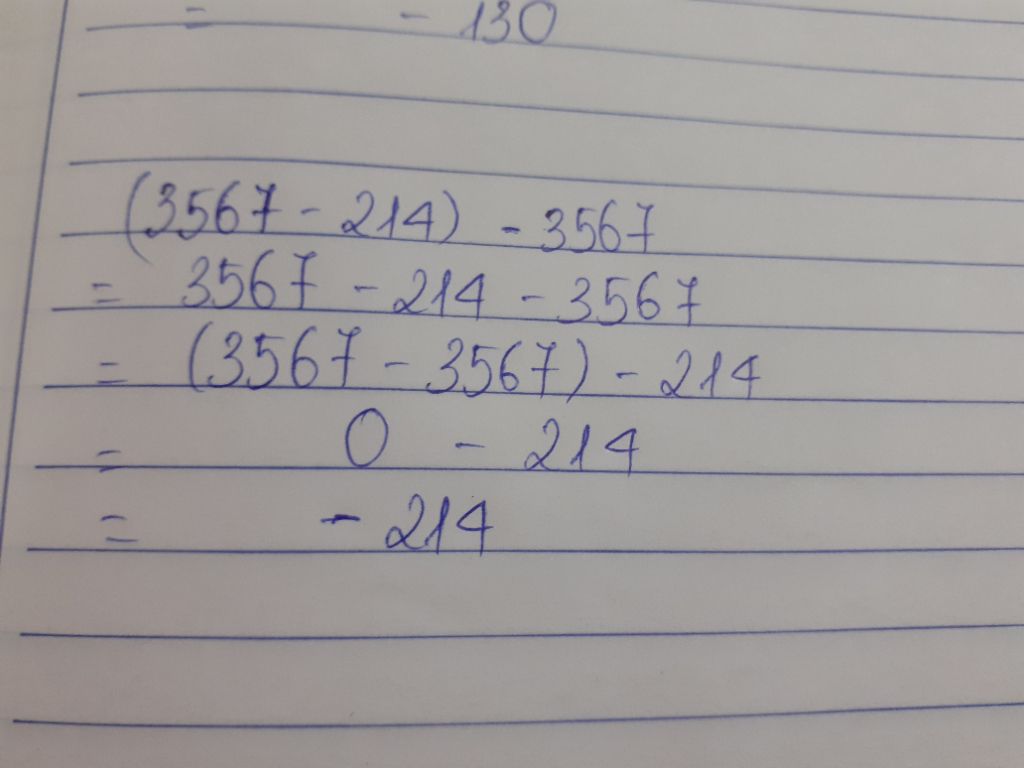 = - 130
(3567 - 214) - 3567
= 3567 - 214 - 3567
= (3567 - 3567) - 214
= 0 - 214
= - 214